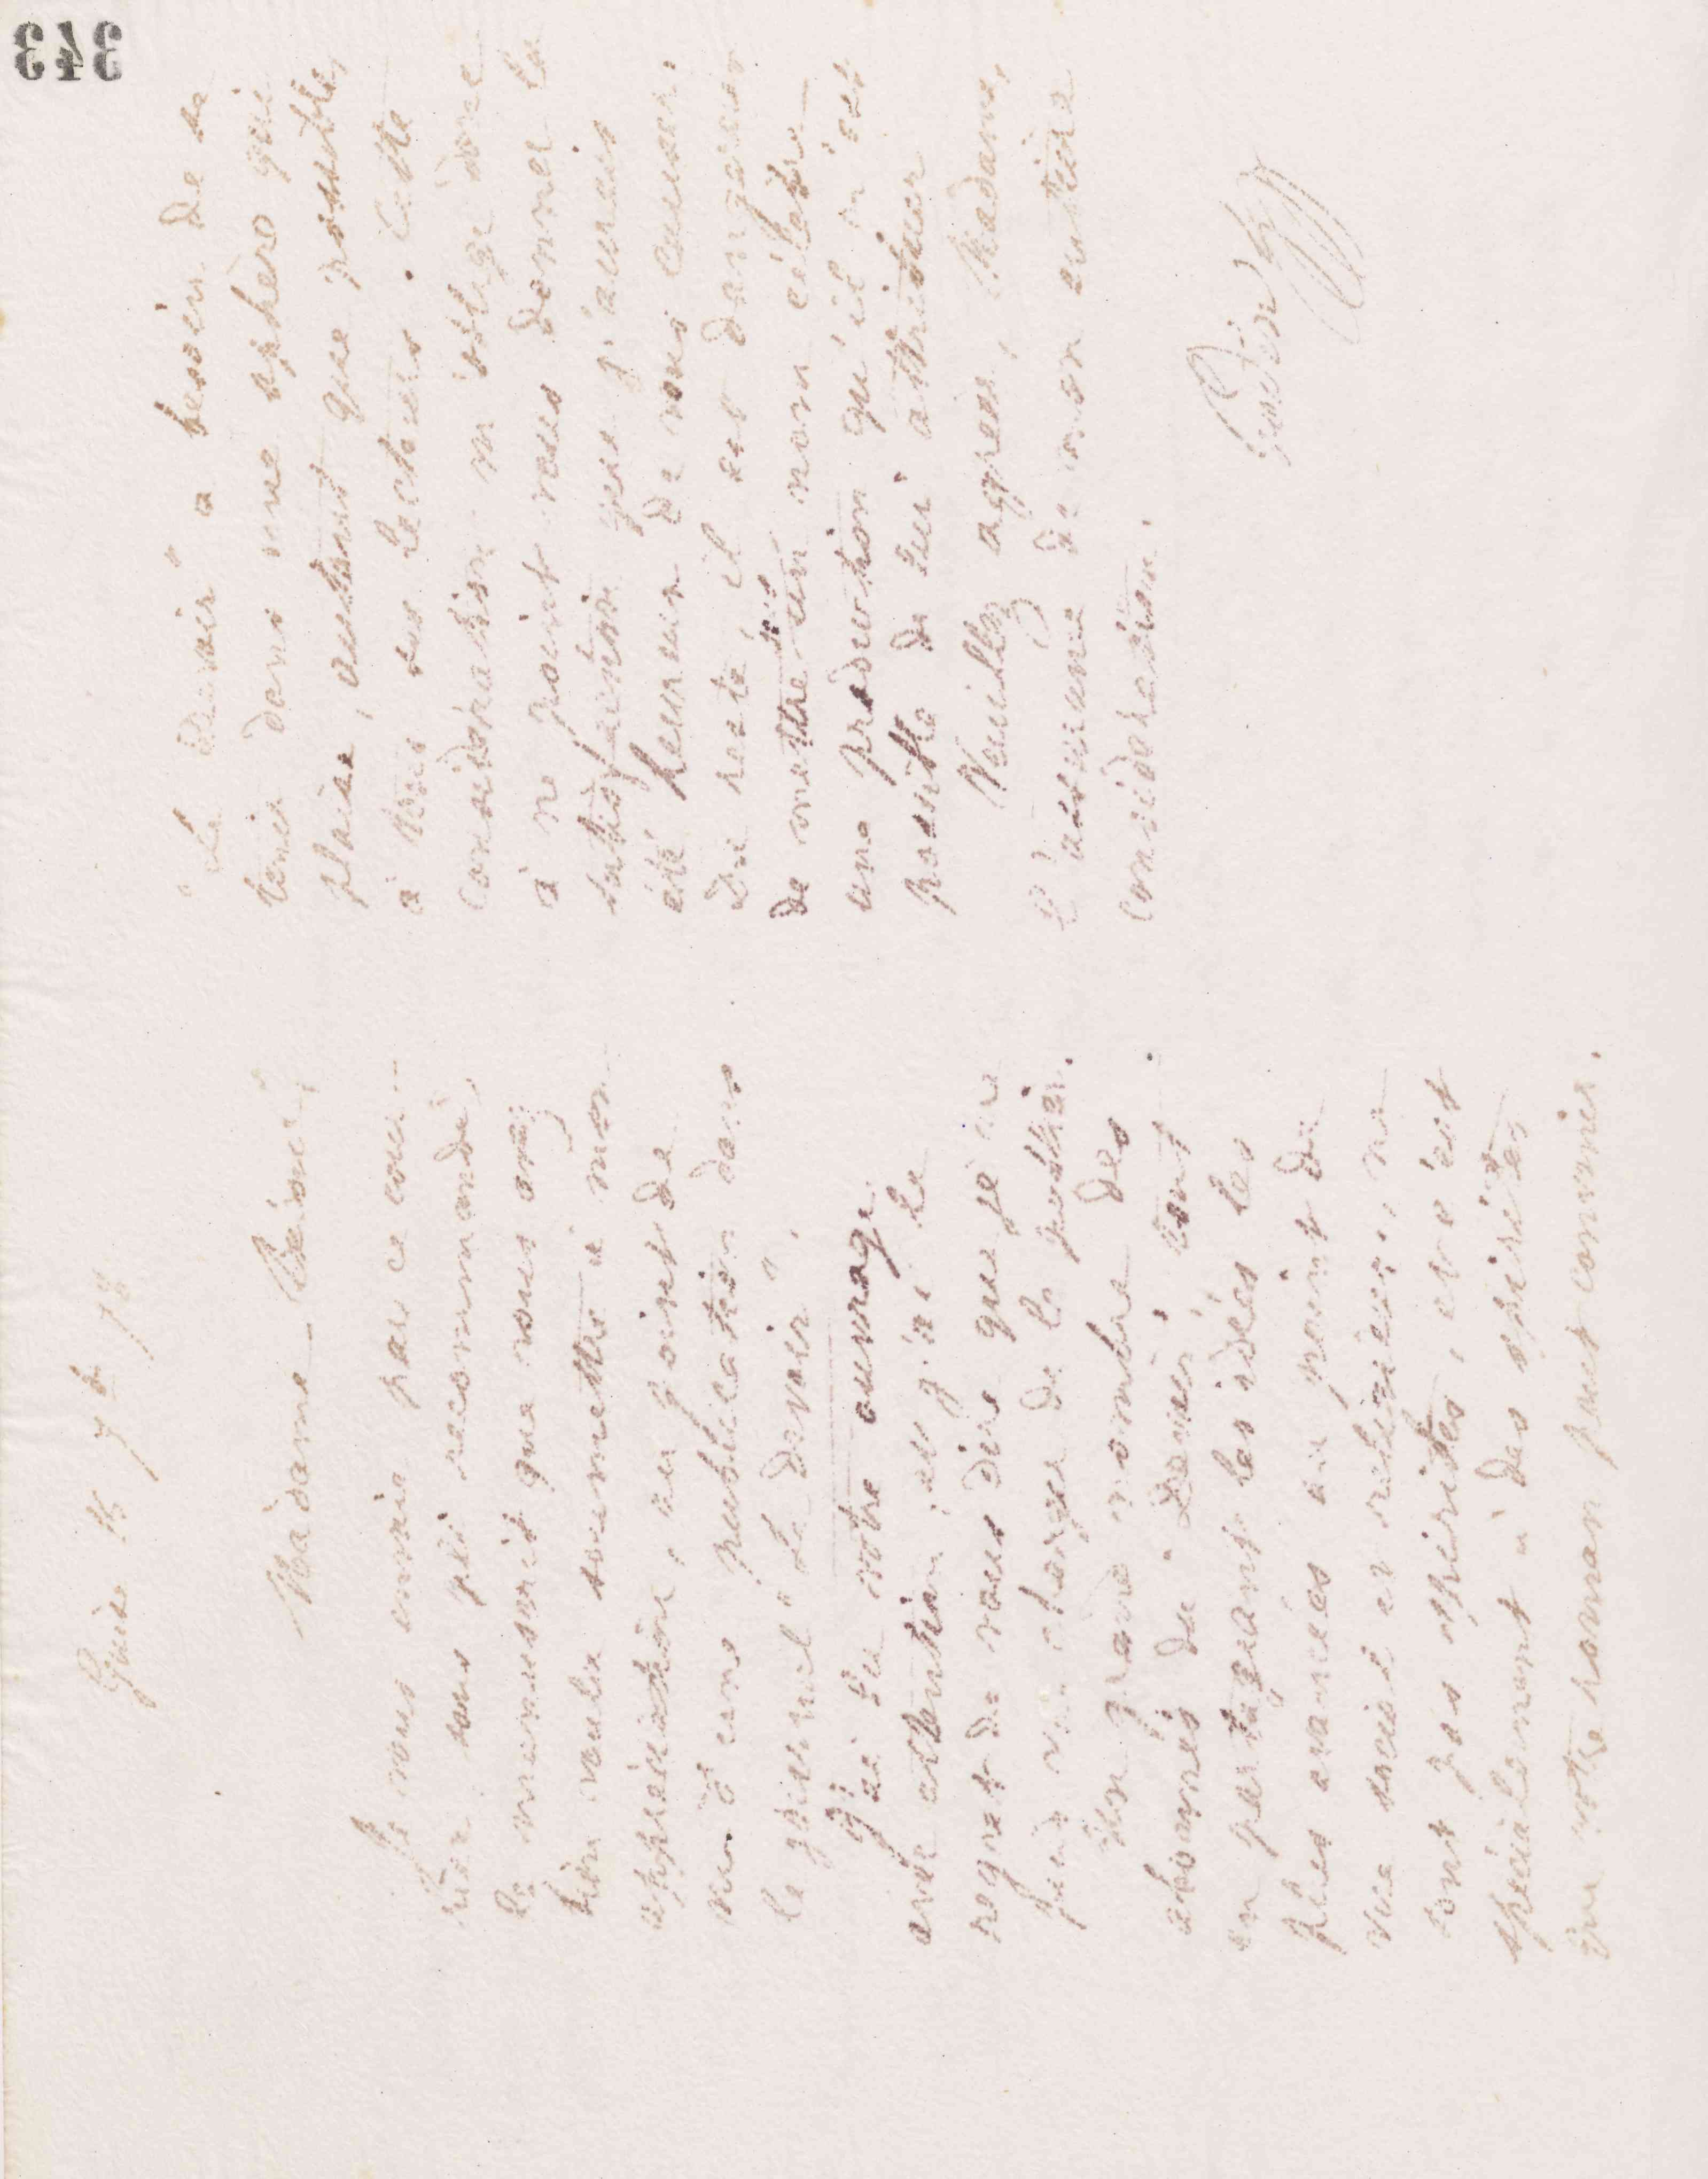 343
Guise 16 7bre 78
Madame Briones,
Je vous envoie par ce cour-
rier, sous pli recommandé,
le manuscrit que vous avez
bien voulu soumettre à mon
appréciation, au point de
vue d'une publication dans
le journal "Le devoir".
J'ai lu votre ouvrage
avec attention, et j'ai le
regret de vous dire que je ne
puis me charger de le publier.
Un grand nombre des
abonnés du "Devoir", tout
en partageant les idées les
plus avancées au point de
vue social et religieux, ne
sont pas spirites, et c'est
spécialement à des spirites
que votre roman peut convenir.
"Le devoir" a besoin de se
tenir dans une sphère qui
plaise, autant que possible,
à tous ses lecteurs. Cette
considération m'oblige donc
à ne point vous donner la
satisfaction que j'aurais
été heureux de vous causer.
Du reste, il est dangereux
de mettre un nom célèbre
une production qu'il n'est
possible de lui attribuer
Veuillez agréer, Madame,
l'assurance de mon entière
considération.
Godin